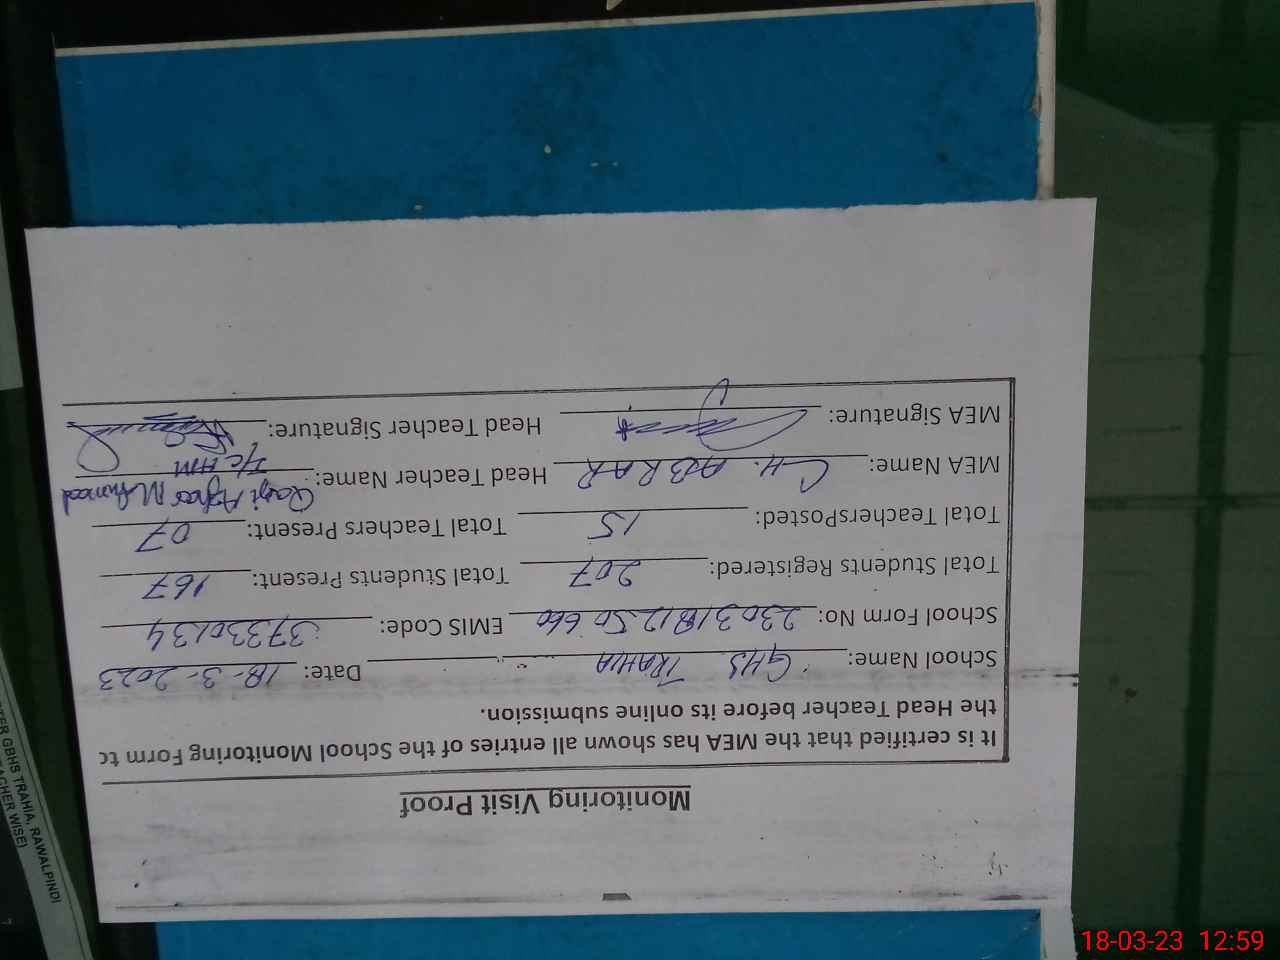 Monitoring Visit Proof
It is certified that the MEA has shown all entries of the School Monitoring Form to
the Head Teacher before its online submission.
School Name: GHS TRAHIA Date: 18-3-2023
School Form No: EMIS Code: 37330134
Total Students Registered: 207 Total Students Present: 167
Total TeachersPosted: 15 Total Teachers Present: 07
MEA Name: CH. ABRAR Head Teacher Name: Qazi Mahmood
I/C HM
MEA Signature: Head Teacher Signature:
GBHS TRAHIA, RAWALPINDI
WISE)
18-03-23 12:59